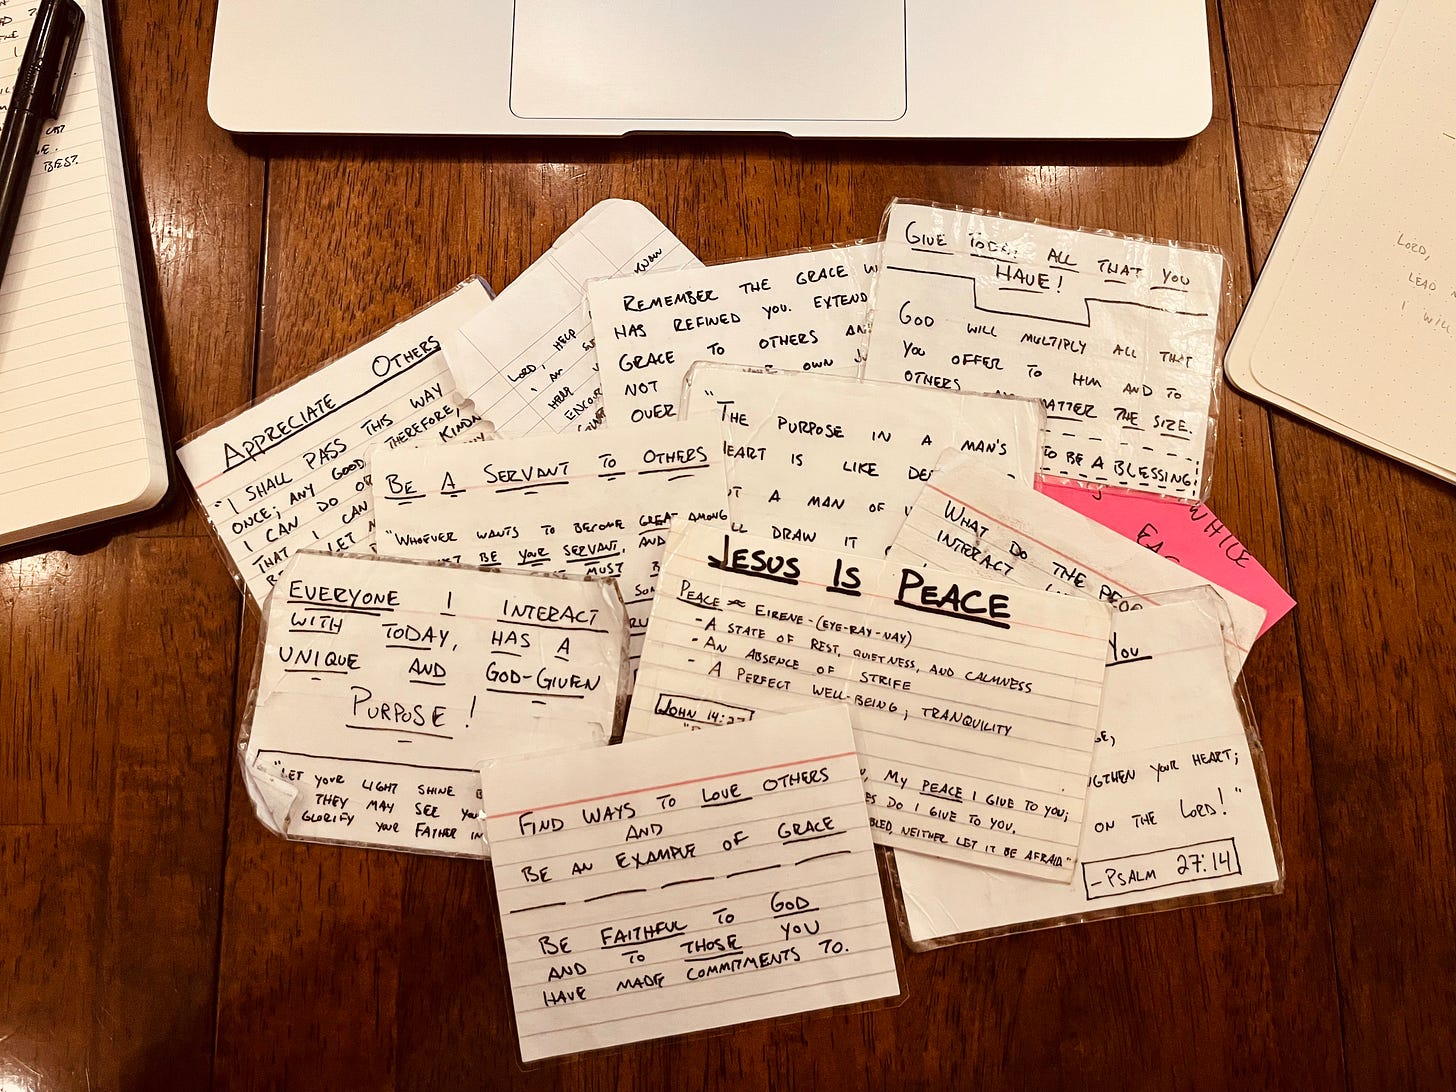 BEST.
APPRECIATE OTHERS
"I SHALL PASS THIS WAY
ONCE; ANY GOOD
THEREFORE,
I CAN DO OR
KINDN
THAT I CAN
LET
LORD, HELP
KNOW
HELP
REMEMBER THE GRACE
HAS REFINED YOU. EXTEND
GRACE TO OTHERS AN
NOT OWN
OVER
GIVE TODAY ALL THAT YOU
HAVE!
GOD WILL MULTIPLY ALL THAT
YOU OFFER TO HIM AND TO
OTHERS MATTER THE SIZE.
TO BE A BLESSING
BE A SERVANT TO OTHERS
"WHOEVER WANTS TO BECOME GREAT AMONG
BE YOUR SERVANT, AND
MUST
"THE PURPOSE IN A MAN'S
HEART IS LIKE DEE
A MAN OF
DRAW IT
WHAT DO THE PEOP
INTERACT
WHILE
EAC
EVERYONE I INTERACT
WITH TODAY, HAS A
UNIQUE AND GOD-GIVEN
PURPOSE!
"LET YOUR LIGHT SHINE
THEY MAY SEE YOU
GLORIFY YOUR FATHER IN
JESUS IS PEACE
PEACE ≈ EIRENE - (EYE-RAY-NAY)
- A STATE OF REST, QUIETNESS, AND CALMNESS
- AN ABSENCE OF STRIFE
- A PERFECT WELL-BEING; TRANQUILITY
JOHN 14:27
MY PEACE I GIVE TO YOU;
DO I GIVE TO YOU.
NEITHER LET IT BE AFRAID."
YOU
GTHEN YOUR HEART;
ON THE LORD!"
- PSALM 27:14
FIND WAYS TO LOVE OTHERS
AND
BE AN EXAMPLE OF GRACE
BE FAITHFUL TO GOD
AND TO THOSE YOU
HAVE MADE COMMITMENTS TO.
LORD,
LEAD
I WILL